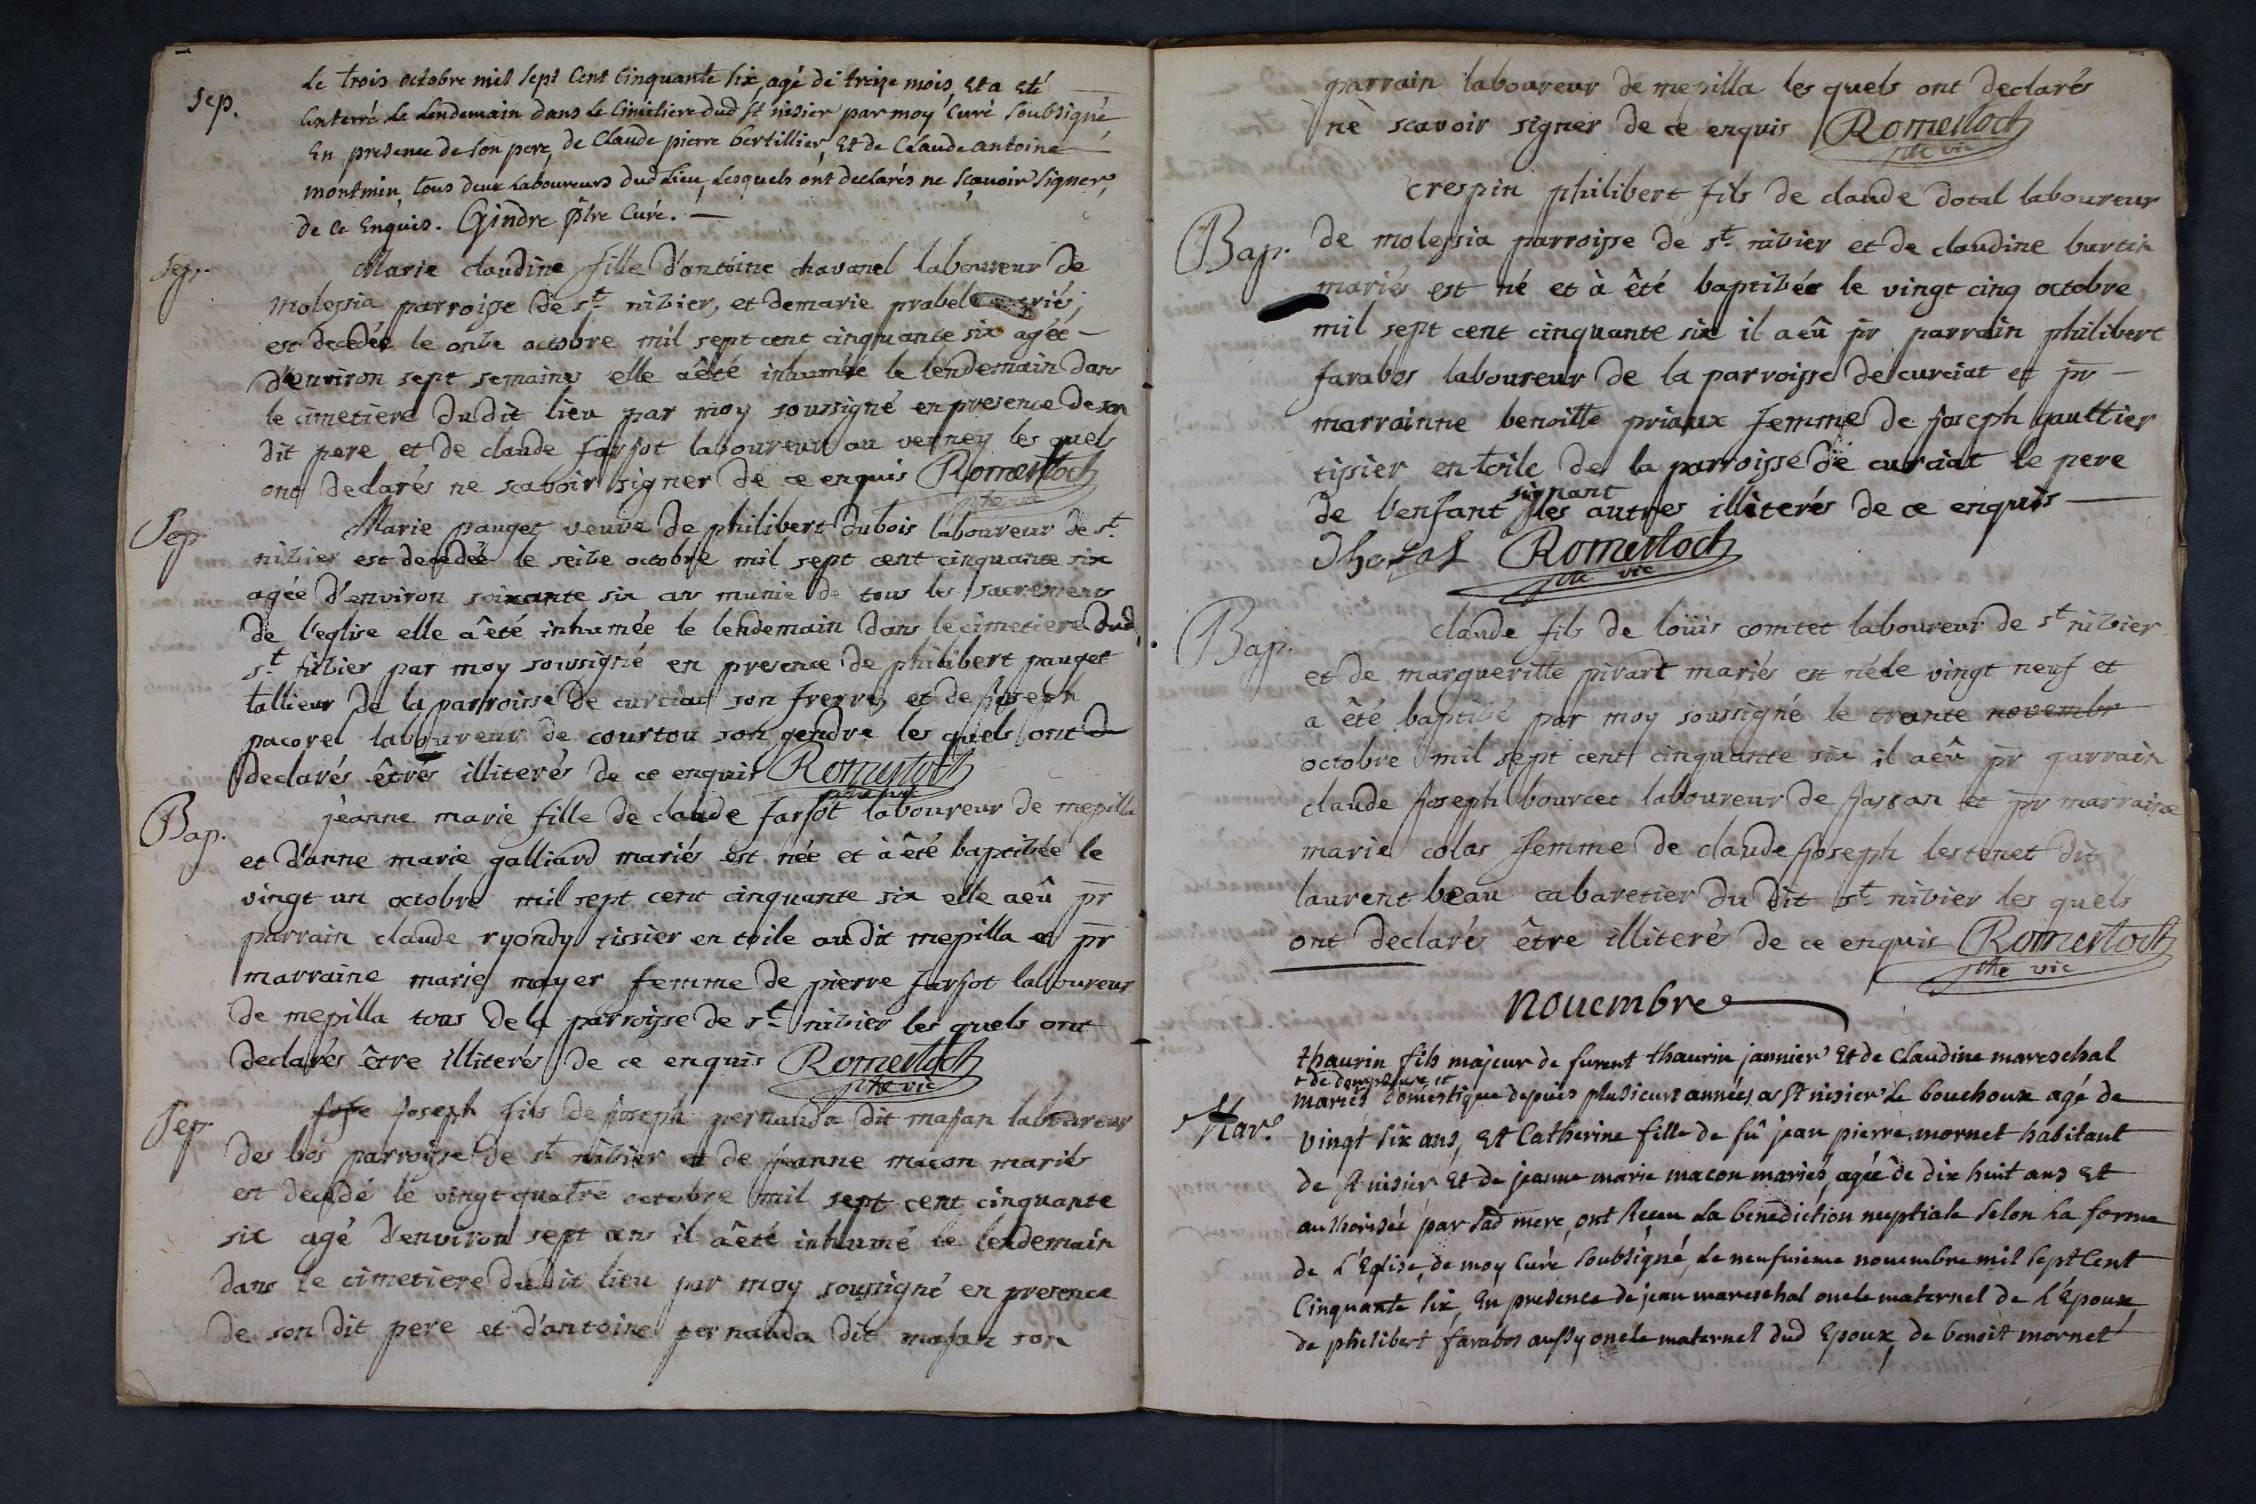 sep. Le trois octobre mil sept Cent Cinquante six, agé de treize mois, Et a eté
Enterré Le Lendemain dans Le Cimitiere dud St nisier par moy Curé soubsigné
En presence de son pere, de Claude pierre bertillier, Et de Claude antoine
montmin, tous deux Laboureurs dud Lieu, Lesquels ont declarés ne sçavoir signer,
de ce Enquis. Gindre ptre Curé.
Sep. Marie claudine fille d'antoine chavanel laboureur de
molessia parroisse de st nizier, et de marie prabel mariés,
est decedée le onze octobre mil sept cent cinquante six agée
d'environ sept semaines elle a êté inhumée le lendemain dans
le cimetiere du dit lieu par moy soussigné en presence de son
dit pere et de claude farjot laboureur au verney les quels
ont declarés ne scavoir signer de ce enquis Romerloch
ptre vic
Sep. Marie pauget veuve de philibert dubois laboureur de st
nizier est decedée le seize octobre mil sept cent cinquante six
agée d'environ soixante six ans munie de tous les sacrements
de l'eglise elle a êté inhumée le lendemain dans le cimetiere dud
st nizier par moy soussigné en presence de philibert pauget
tallieur de la parroisse de curciat son frerre, et de joseph
pacoret laboureur de courtou son gendre les quels ont d
declarés êtres illiterés de ce enquis Romerloch
ptre vic
Bap. jeanne marie fille de claude farjot laboureur de mepilla
et d'anne marie galliard mariés est née et à êté baptizée le
vingt un octobre mil sept cent cinquante six elle a eû pr
parrain claude ryondy tissier en toile au dit mepilla et pr
marraine marie mayer femme de pierre farjot laboureur
de mepilla tous de la parroisse de st nizier les quels ont
declarés être illiterés de ce enquis Romerloch
ptre vic
Sep. joseph fils de joseph pernauda dit majan laboureur
des bos parroisse de st nizier et de jeanne macon mariés
est decedé le vingt quatre octobre mil sept cent cinquante
six agé d'environ sept ans il a êté inhumé le lendemain
dans le cimetiere du dit lieu par moy soussigné en presence
de son dit pere et d'antoine pernauda dit majan son
parrain laboureur de mepilla les quels ont declarés
ne scavoir signer de ce enquis Romerloch
ptre vic
crespin philibert fils de claude dotal laboureur
Bap. de molessia parroisse de st nizier et de claudine burtin
mariés est né et à êté baptizée le vingt cinq octobre
mil sept cent cinquante six il a eû pr parrain philibert
farabos laboureur de la parroisse de curciat et pr
marrainne benoitte priaux femme de joseph gaultier
tissier en toile de la parroisse de curciat le pere
de l'enfant signant les autres illiterés de ce enquis
Romerloch
ptre vic
Bap. claude fils de loüis comtet laboureur de st nizier
et de margueritte pirard mariés est né le vingt neuf et
a êté baptizé par moy soussigné le trente novembr
octobre mil sept cent cinquante six il a eû pr parrain
claude joseph bourcet laboureur de jassan et pr marraine
marie colas femme de claude joseph lestenet dit
laurent beau cabaretier du dit st nizier les quels
ont declarés être illiterés de ce enquis Romerloch
ptre vic
Nouembre
thaurin fils majeur de furent thaurin jannier Et de Claudine mareschal
Mar. mariés domestique depuis plusieurs années a St nisier Le bouchoux agé de
vingt six ans, Et Catherine fille de fû jean pierre mornet habitant
de St nisier Et de jeanne marie macon mariés, agée de dix huit ans Et
authorisée par sad mere, ont Receu La benediction nuptiale selon La forme
de L'Eglise, de moy Curé soubsigné, Le neufvieme nouembre mil sept Cent
Cinquante six, En presence de jean mareschal oncle maternel de L'Epoux,
de philibert farabos aussy oncle maternel dud Epoux, de benoit mornet